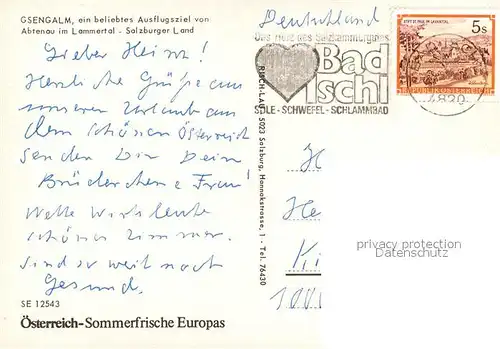 GSENGALM, ein beliebtes Ausflugsziel von
Abtenau im Lammertal - Salzburger Land
Lieber Heinz!
Herzliche Grüße aus
unseren Urlaub aus
dem schönen Österreich
senden Dir Dein
Brüderchen e Frau!
Nette Wirtsleute
schöne Zimmer.
Sind so weit noch
Gesund.
SE 12543
Österreich-Sommerfrische Europas
RISCH-LAU, 5023 Salzburg, Hannakstrasse, 1 - Tel. 76430
Deutschland
Das Herz des Salzkammergutes
Bad
Ischl
SOLE - SCHWEFEL - SCHLAMMBAD
STIFT ST. PAUL IM LAVANTTAL
5s
REPUBLIK ÖSTERREICH
4820
H
He
Ki
privacy protection
Datenschutz